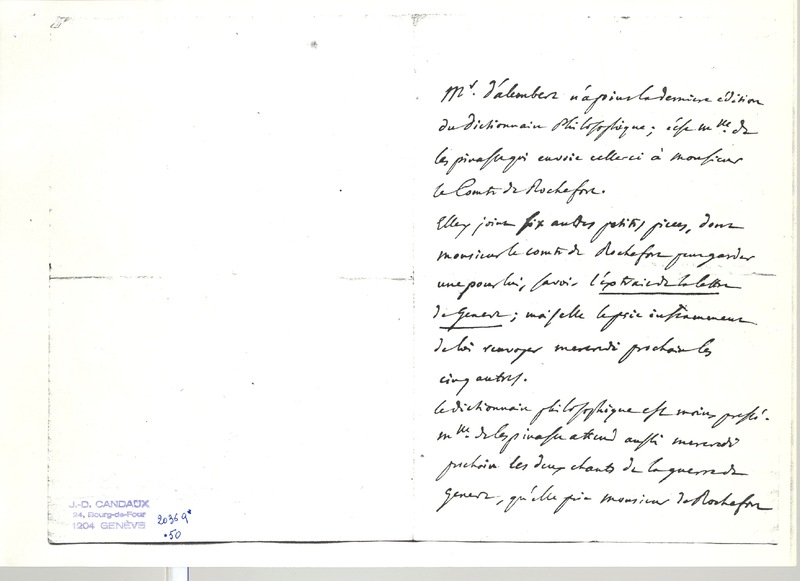 Mr. d'alembert n'a point la derniere édition
du dictionnaire Philosophique; c'est mlle de
lespinasse qui envoie celle ci à monsieur
le Comte de Rochefort.
Elle y joint six autres petites pieces, dont
monsieur le comte de Rochefort peut garder
une pour lui, savoir l'extrait de la lettre
de Geneve; mais elle le prie instamment
de lui renvoyer mercredi prochain les
cinq autres.
le dictionnaire philosophique est moins pressé.
mlle de lespinasse attend aussi mercredi
prochain les deux chants de la guerre de
Geneve, qu'elle prie monsieur de Rochefort
J.-D. CANDAUX
24, Bourg-de-Four
1204 GENÈVE
20369*
*50